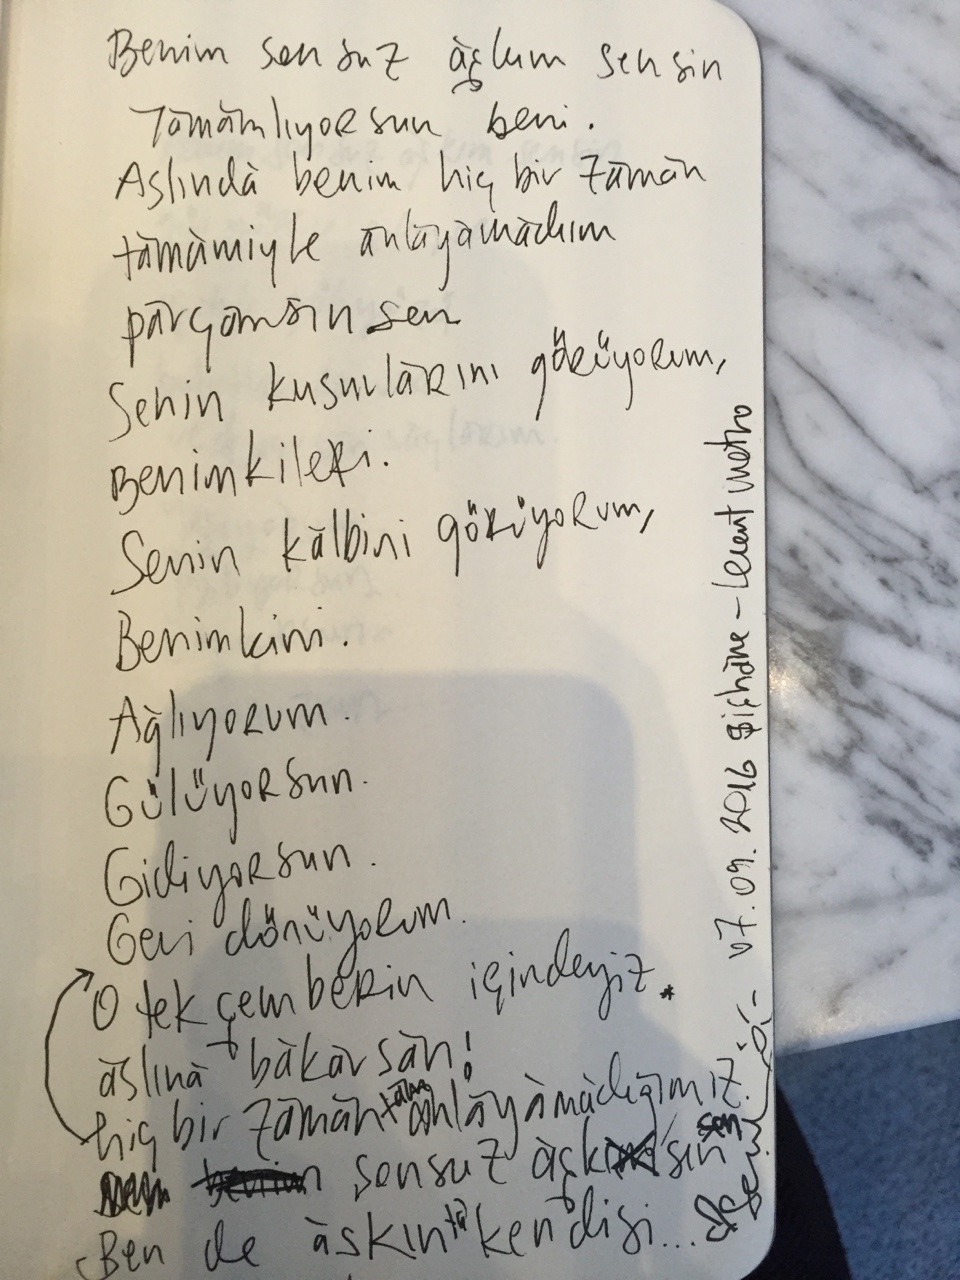 Benim sonsuz aşkım sensin
Tamamlıyorsun beni.
Aslında benim hiç bir zaman
tamamiyle anlayamadım
parçamsın sen
Senin kusurlarını görüyorum,
Benimkileri.
Senin kalbini görüyorum,
Benimkini.
Ağlıyorum.
Gülüyorsun.
Gidiyorsun.
Geri dönüyorum.
O tek çemberin içindeyiz.
aslına bakarsan!
hiç bir zaman tam anlayamadığımız.
sonsuz aşksın sen
Ben de aşkın ta kendisi...
07.09.2016 şişhane - Levent metro